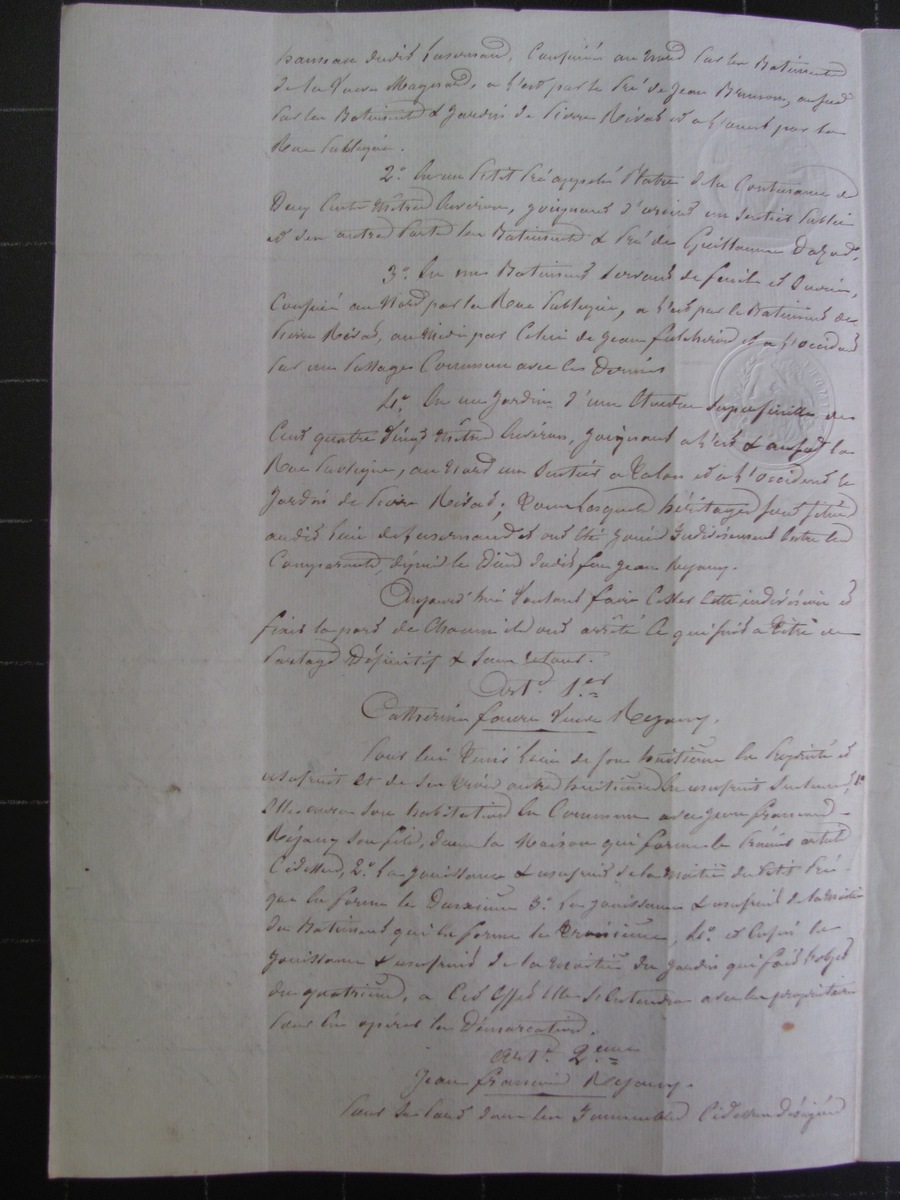 hameau dudit Lasernaud, Confiné au nord par les Batiment
de la Veuve Magnaud, a l'est par le Pré de Jean Brunon, au sud
par les Batiment & Jardin de Pierre Rivas et a l'ouest par la
Rue Publique.
2.° En un Petit Pré appelé de la Contenance de
Deux Cents Mètres Environ, joignant d'orient un sentier Public
et d'en autre Parts les Batiments & Pré de Guillaume
3.° En un Batiment Servant de fenil et
Confiné au Nord par la Rue Publique, a l'est par le Batiment de
Pierre Rivas, au midi par Celui de Jean et a l'occident
par un Passage Commun avec les Dernier
4.° En un Jardin d'une Etendue Superficielle de
Cent quatre Vingt Mètres Environ, Joignant a l'est & au sud la
Rue Publique, au Nord un Sentier a Talon et a l'occident le
Jardin de Pierre Rivas; tous lesquels héritages sont situés
audit lieu de Lasernaud et ont été Jouis Indivisément Entre les
Comparants, depuis le Décès dudit feu Jean Rejany.
Aujourd'hui Voulant faire Cesser Cette indivision et
fixer la part de Chacun ils ont arrêté Ce qui suit a titre de
Partage Définitif & Sans retour.
Art. 1.er
Catherine faure Veuve Rejany.
Pour lui Tenir lieu de son huitième En Propriété et
usufruit et de Son autre huitième En usufruit Seulement, 1.°
Elle aura Son habitation En Commun avec Jean francois
Réjany Son fils, dans la Maison qui forme le Premier article
Cidessus, 2.° La Jouissance & usufruit de la Moitié du Petit Pré
que En forme le Deuxieme 3.° La jouissance & usufruit de la Moitié
du Batiment qui En forme le troisieme, 4.° et Enfin la
Jouissance & usufruit de la Moitié du Jardin qui fait l'objet
du quatrieme, a Cet Effet Elle S'Entendra avec les propriétaires
Pour En opérer la Démarcation.
Art. 2.eme
Jean francois Rejany.
Pour Sa part dans les Immeubles Cidessus désignés